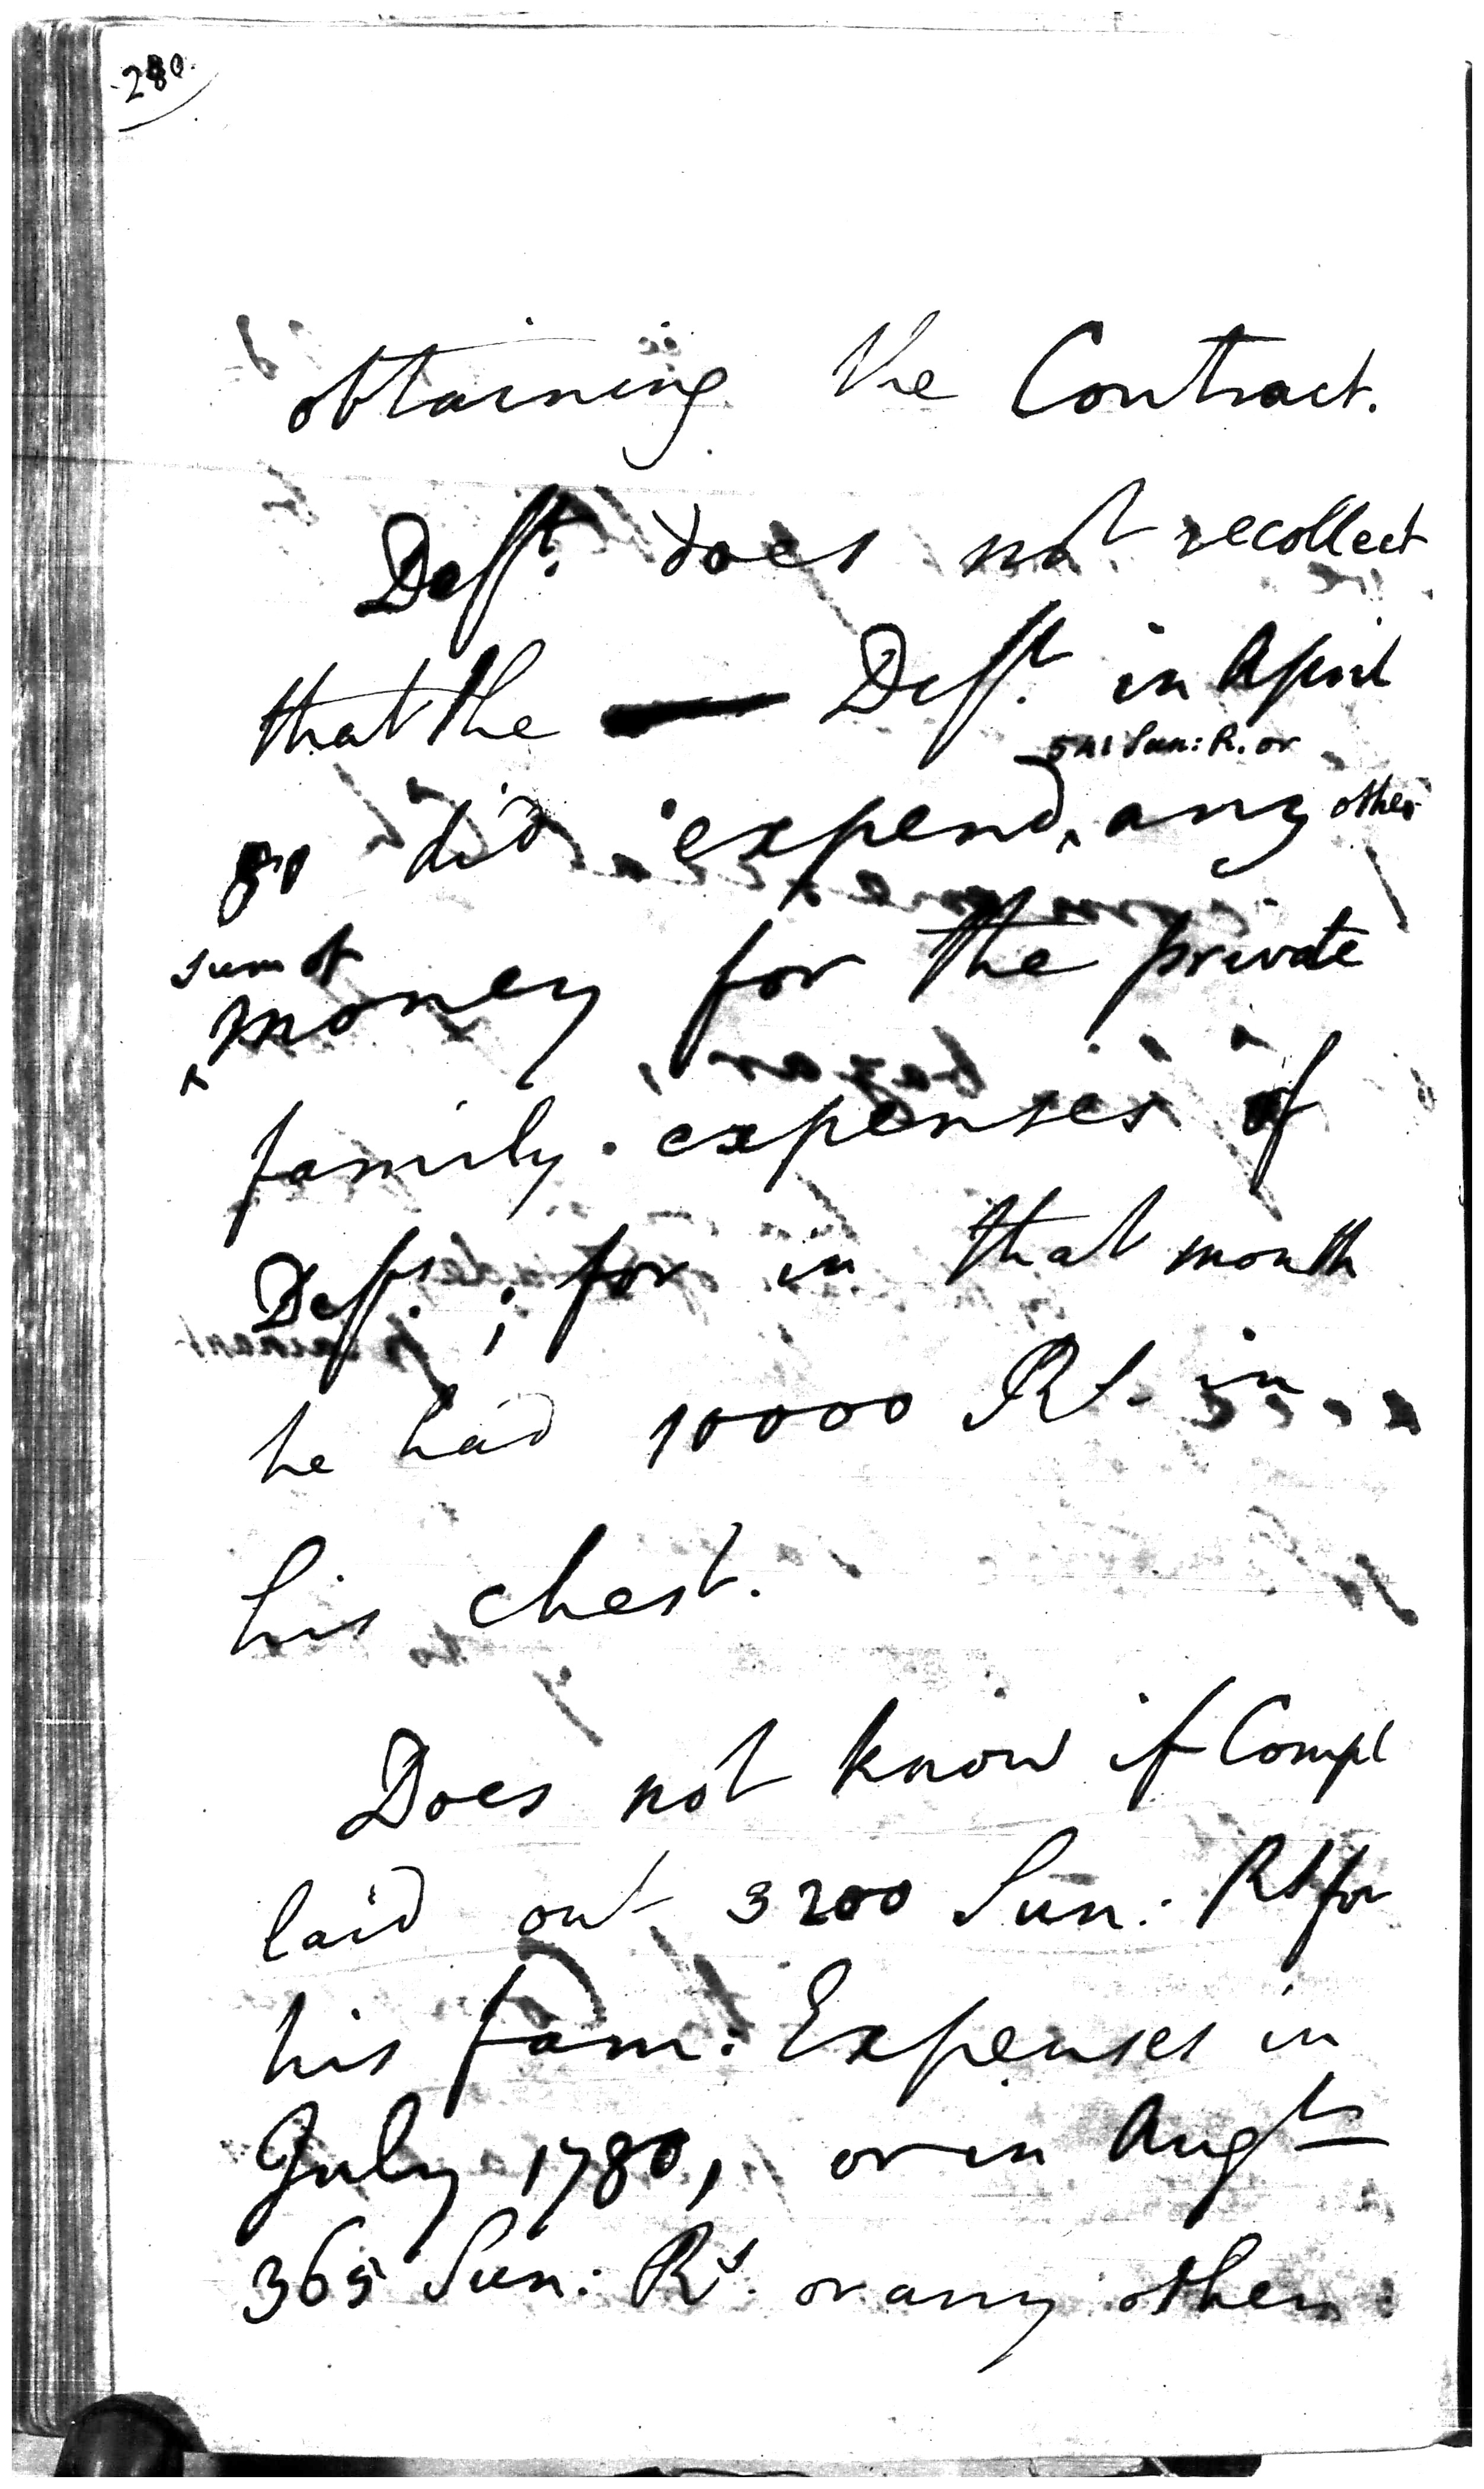 280
obtaining the Contract.
Deft. does not recollect
that the Deft. in April
541 Sun: R. or
80 did expend, any other
sum of
money for the private
family expenses of
Deft. ; for in that month
he had 10000 Rs. in
his chest.
Does not know if Compl
laid out 3200 Sun: Rs for
his fam: Expenses in
July 1780, or in Augt
365 Sun: Rs. or any other